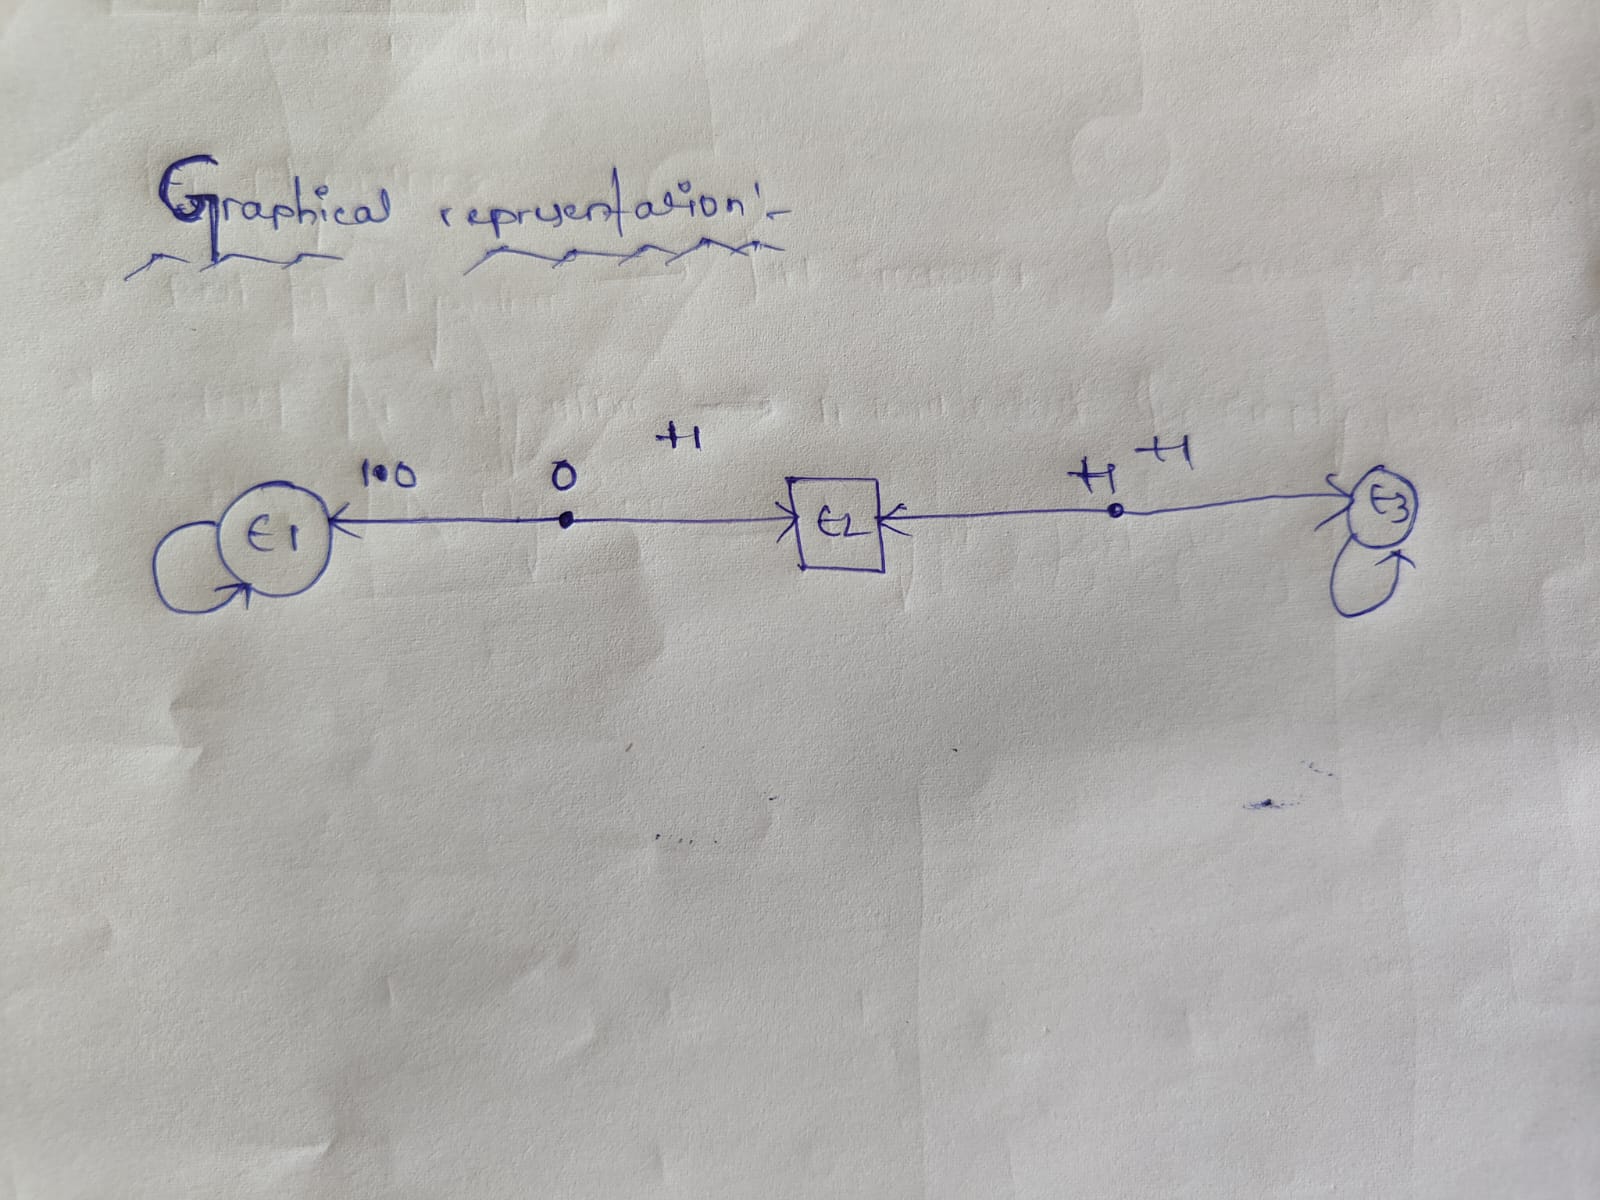 Graphical representation:-
+1
100 0 +1 +1
E1 E2 E3